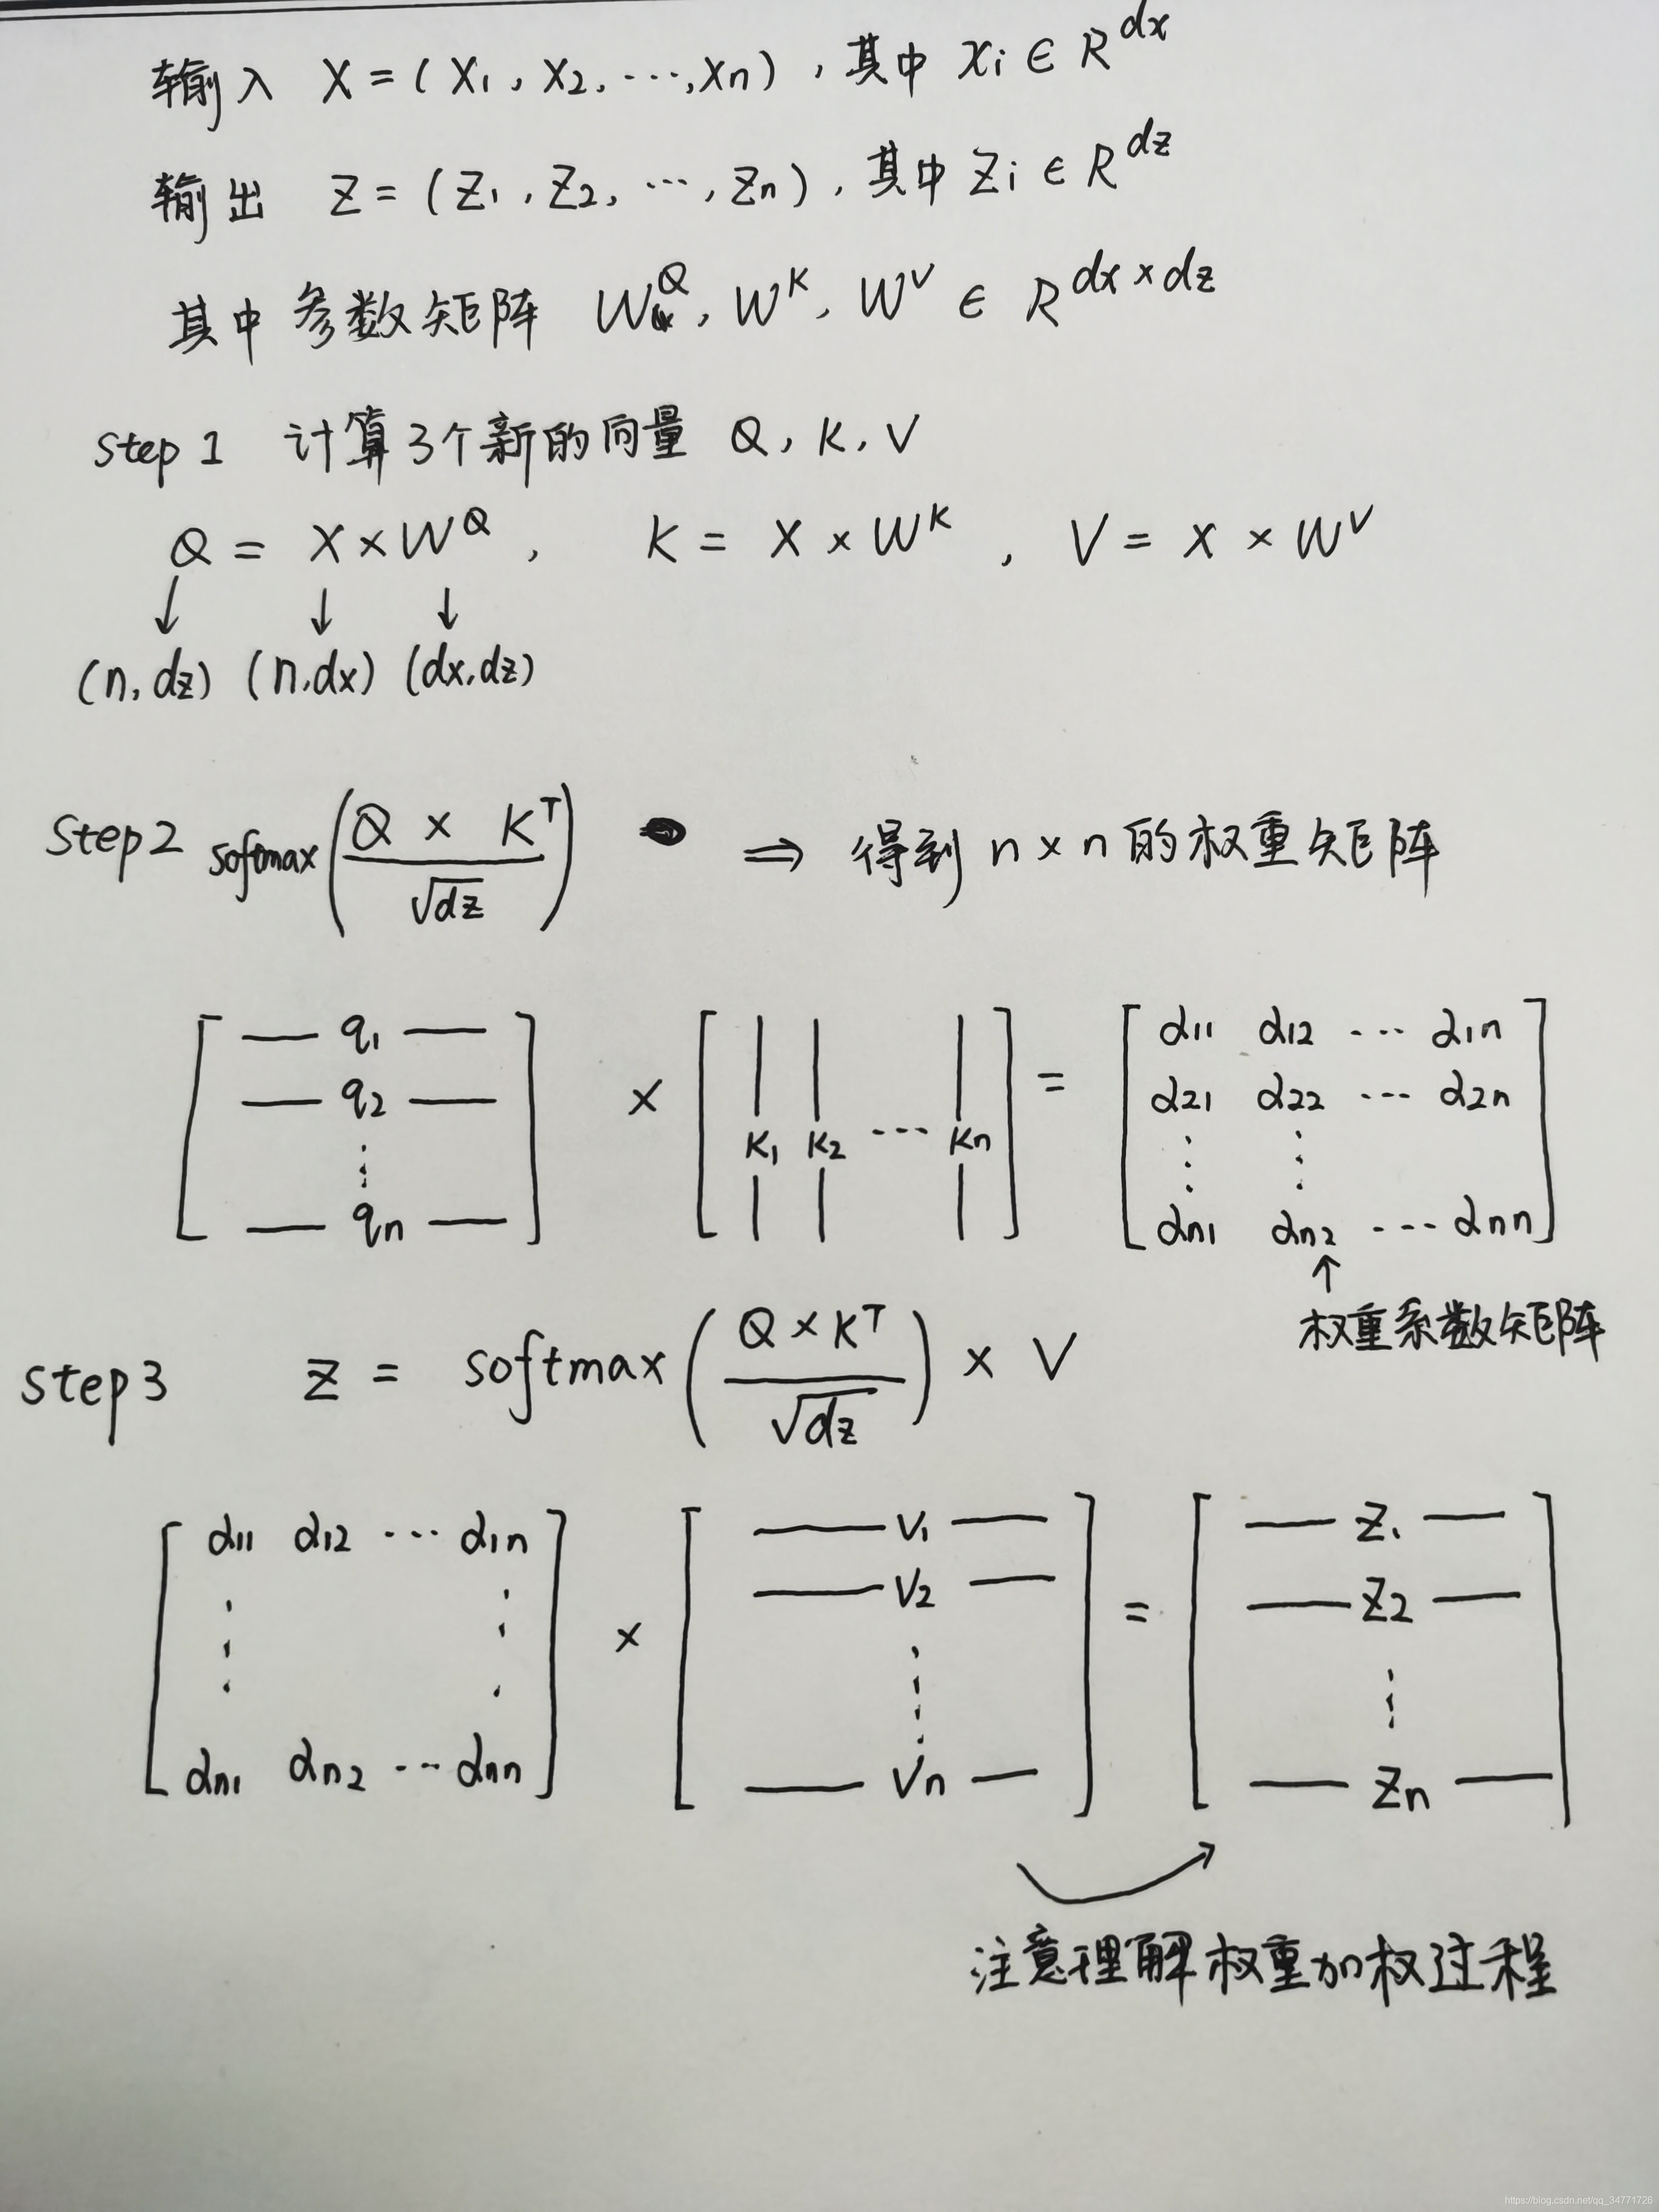 输入 X = ( X1 , X2, ⋯, Xn ) , 其中 Xi ∈ R^dx
输出 Z = ( Z1 , Z2, ⋯ , Zn ) , 其中 Zi ∈ R^dz
其中参数矩阵 W^Q, W^K, W^V ∈ R^dx×dz
Step 1 计算3个新的向量 Q, K, V
Q = X × W^Q , K = X × W^K , V = X × W^V
↓ ↓ ↓
(n, dz) (n, dx) (dx, dz)
Step2 softmax( (Q × K^T) / √dz ) ⇒ 得到 n×n 的权重矩阵
[ — q1 — ] × [ K1 K2 ⋯ Kn ] = [ α11 α12 ⋯ α1n ]
— q2 — α21 α22 ⋯ α2n
⋮ ⋮ ⋮
— qn — αn1 αn2 ⋯ αnn
↑
权重系数矩阵
Step3 Z = softmax( (Q × K^T) / √dz ) × V
[ α11 α12 ⋯ α1n ] × [ — V1 — ] = [ — Z1 — ]
— V2 — — Z2 —
⋮ ⋮ ⋮ ⋮
αn1 αn2 ⋯ αnn — Vn — — Zn —
注意理解权重加权过程
https://blog.csdn.net/qq_34771726